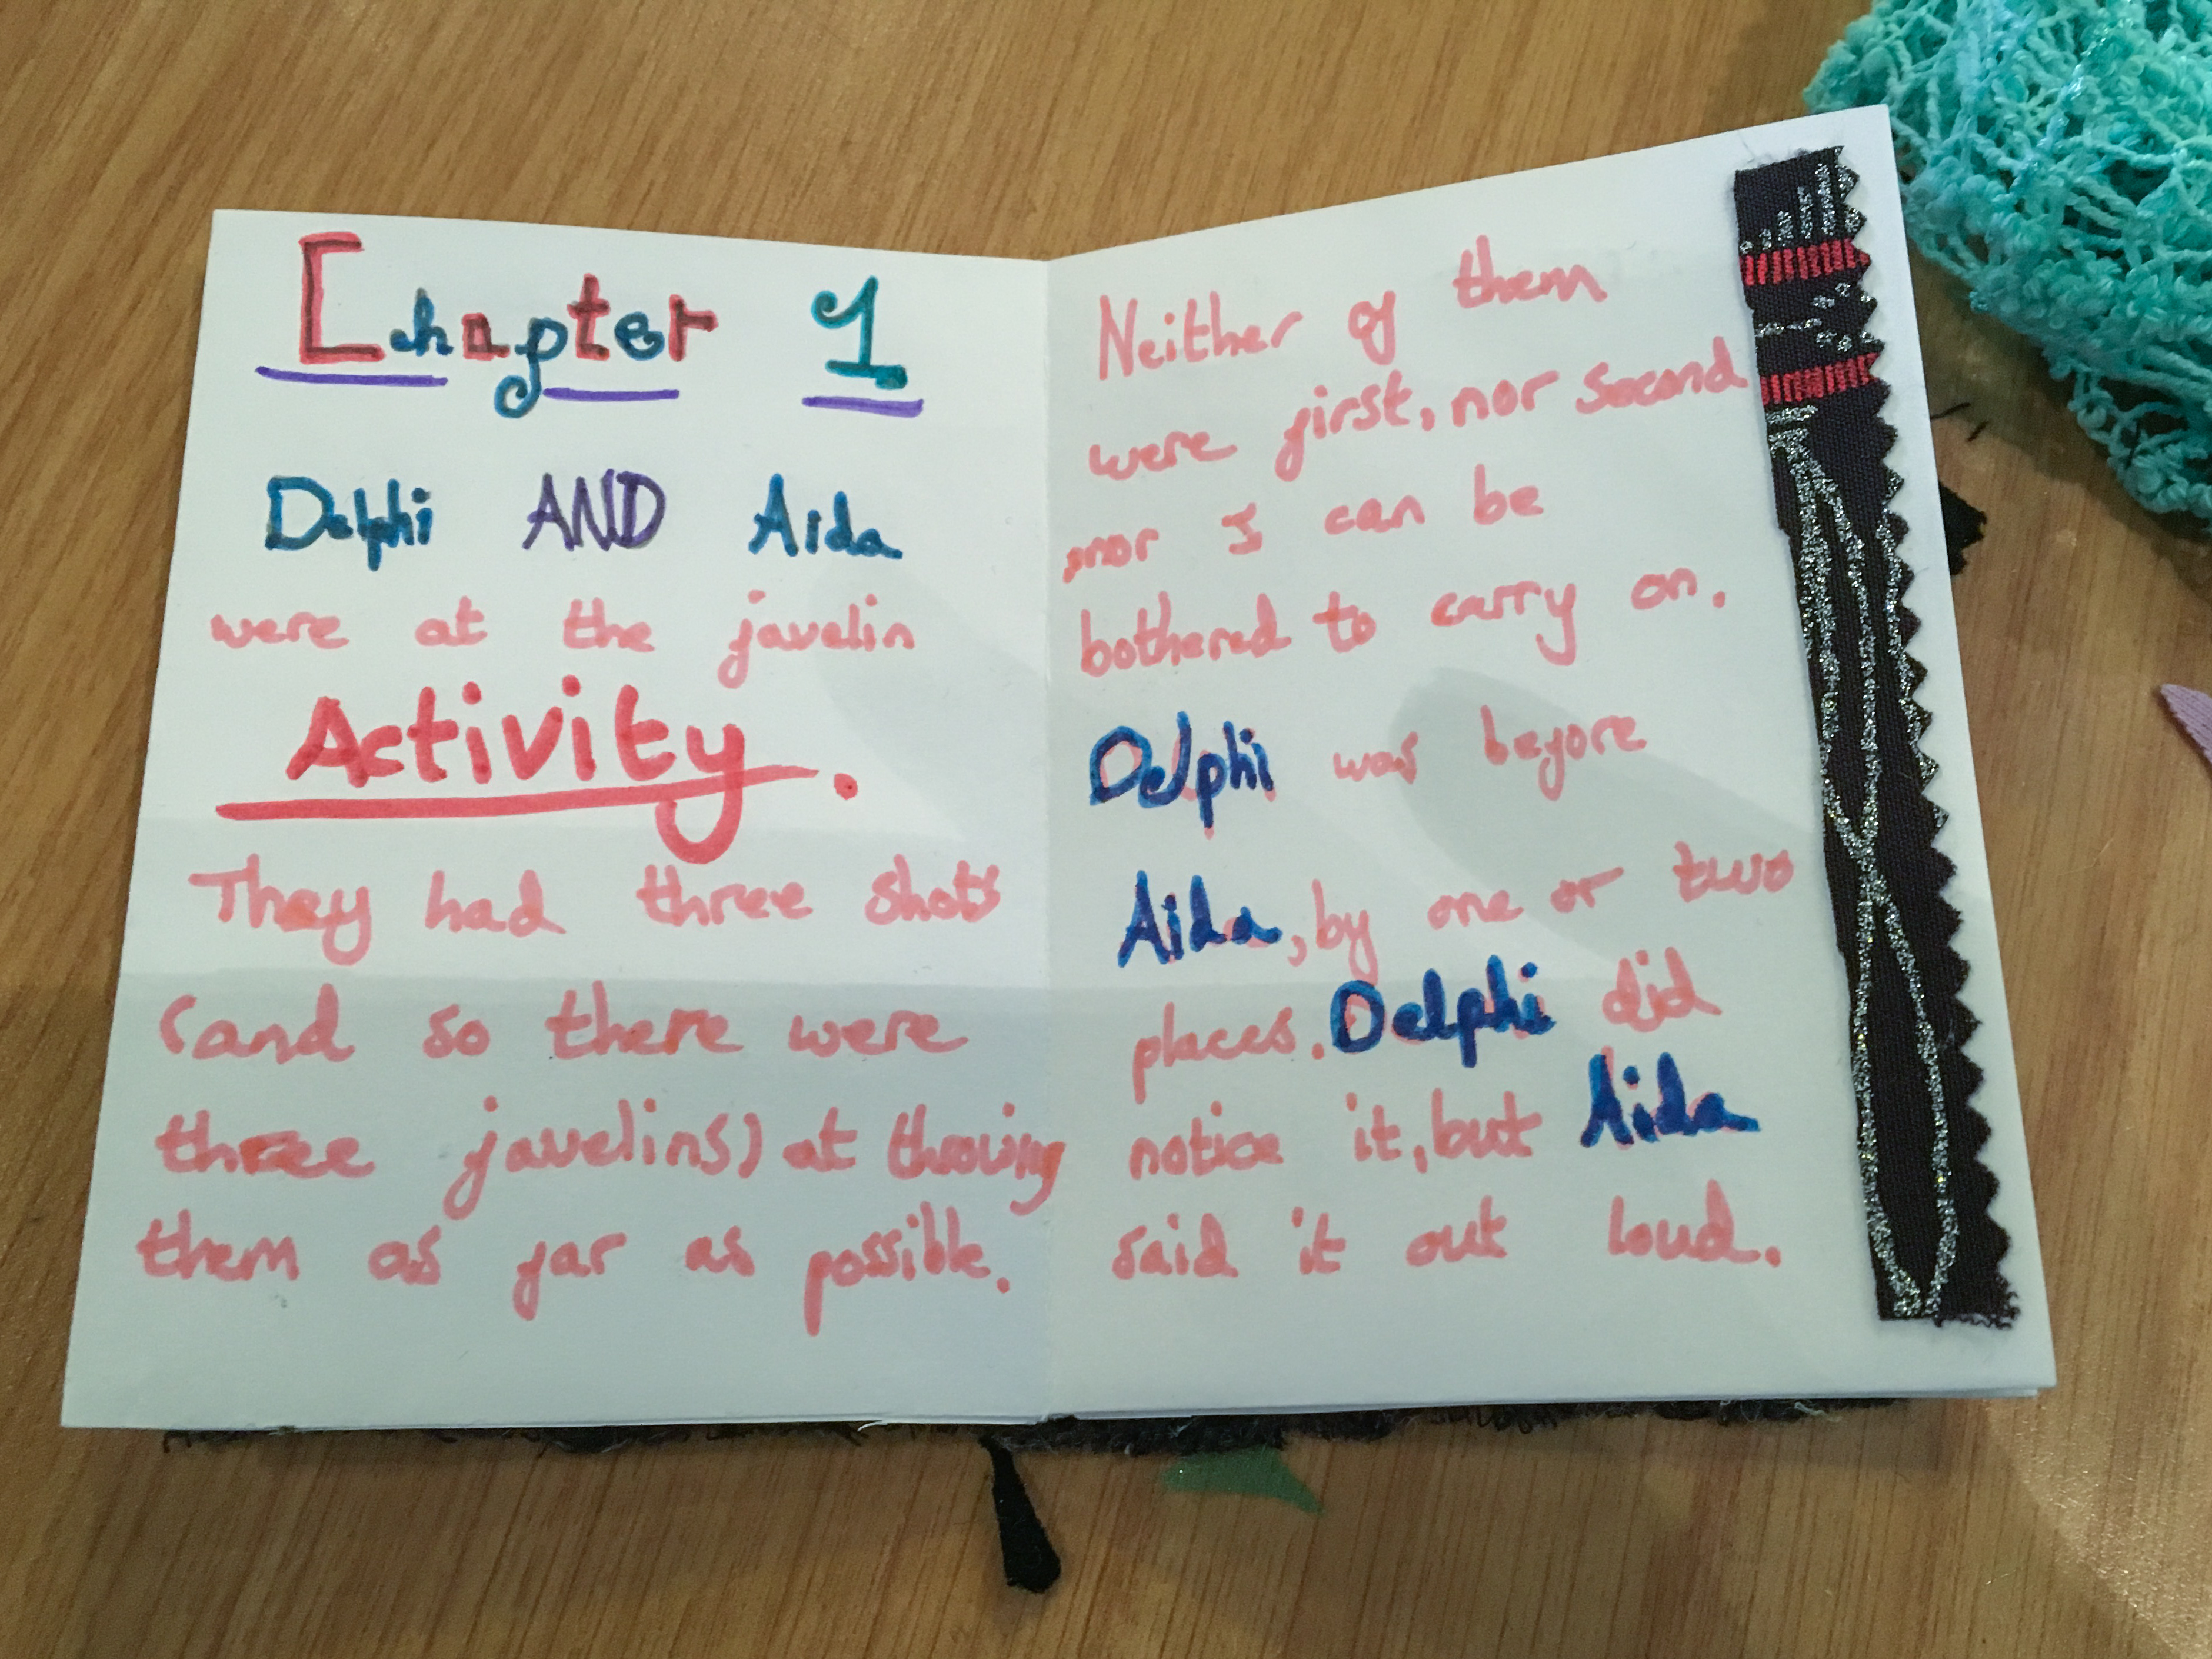 Chapter 1.
Delphi AND Aida
were at the javelin
Activity.
They had three shots
(and so there were
three javelins) at throwing
them as far as possible.
Neither of them
were first, nor second
, nor I can be
bothered to carry on.
Delphi was before
Aida, by one or two
places. Delphi did
notice it, but Aida
said it out loud.